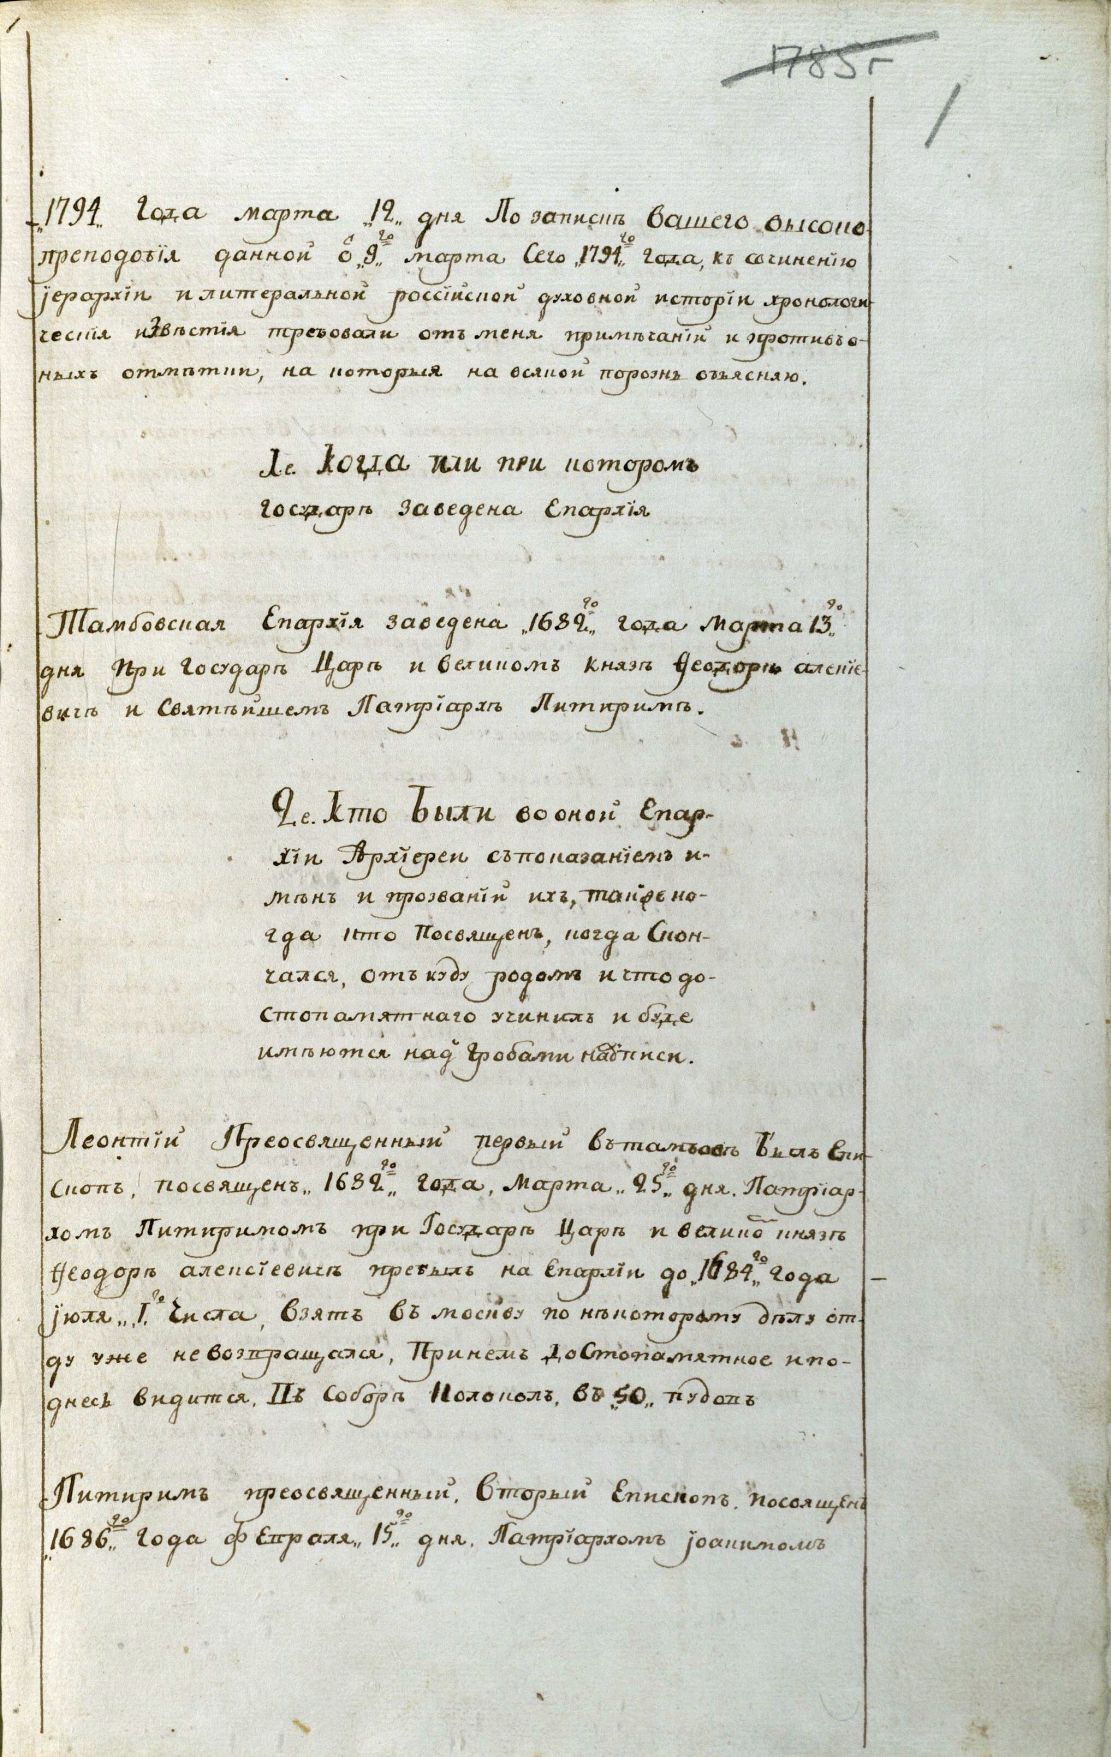 1785 г
1
„1794„ Года марта „12„ дня По записиѣ вашего высоко-
преподобїя данной ѿ „9„го марта Сего „1794„го года, къ сочиненїю
јерархїи и литеральной россїйской духовной исторїи хронологи-
ческїя извѣстїя требовали отъ меня примѣчанїи и
ныхъ отмѣтки, на которыя на всякой порознь объясняю.
1е. Когда или при которомъ
государѣ заведена Епархїя
Тамбовская Епархїя заведена „1682„го года Марта 13„го
дня При государѣ Царѣ и великомъ князѣ Ѳеодорѣ алексїе-
вичѣ и Святѣйшемъ Патрїархѣ Питиримѣ.
2е. Кто Были во оной Епар-
хїи Архїереи съ показанїемъ и-
мѣнъ и прозванїи ихъ, также ко-
гда кто Посвященъ, когда Скон-
чался, отъ куду родомъ и что до-
стопамятнаго учинилъ и буде
имѣются над гробами надписи.
Леонтїй Преосвященный первый въ тамбовѣ Былъ Епи-
скопъ, посвященъ „1682„го года, Марта „25„го дня. Патрїар-
хомъ Питиримомъ при Государѣ Царѣ и велико князѣ
Ѳеодорѣ алексїевичѣ пребылъ на Епархїи до „1684„го года
јюля „1„го числа, Взятъ въ москву по нѣкоторому дѣлу от-
ду уже не возвращался, При немъ достопамятное и по-
днесь видится, Въ Соборѣ Колоколъ, въ „50„ пудовъ
Питиримъ преосвященный, вторый Епископъ, посвященъ
„1686„го года февраля „15„го дня. Патрїархомъ јоакимомъ